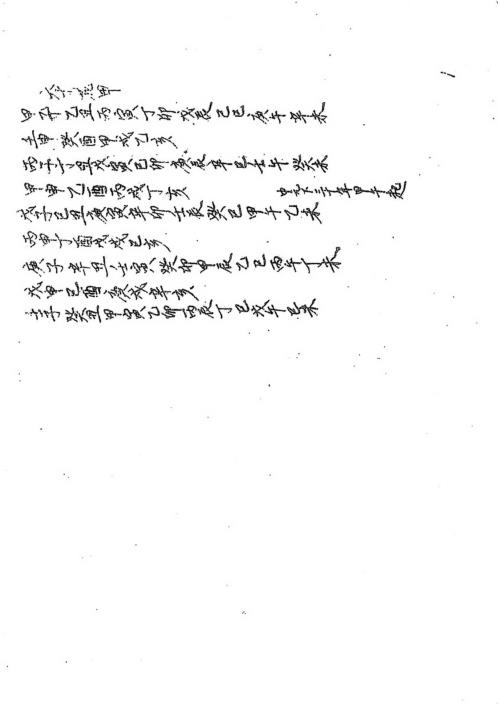 六十花甲
甲子乙丑丙寅丁卯戊辰己巳庚午辛未
壬申癸酉甲戌乙亥
丙子丁丑戊寅己卯庚辰辛巳壬午癸未
甲申乙酉丙戌丁亥
戊子己丑庚寅辛卯壬辰癸巳甲午乙未
丙申丁酉戊戌己亥
庚子辛丑壬寅癸卯甲辰乙巳丙午丁未
戊申己酉庚戌辛亥
壬子癸丑甲寅乙卯丙辰丁巳戊午己未